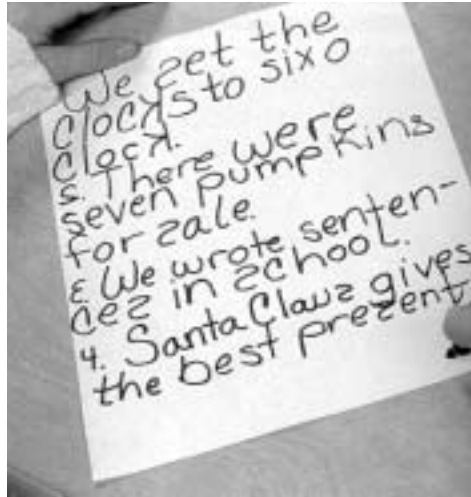 We set the
clocks to six o
clock.
2. There were
seven pumpkins
for sale.
3. We wrote senten-
ces in school.
4. Santa Claus gives
the best present